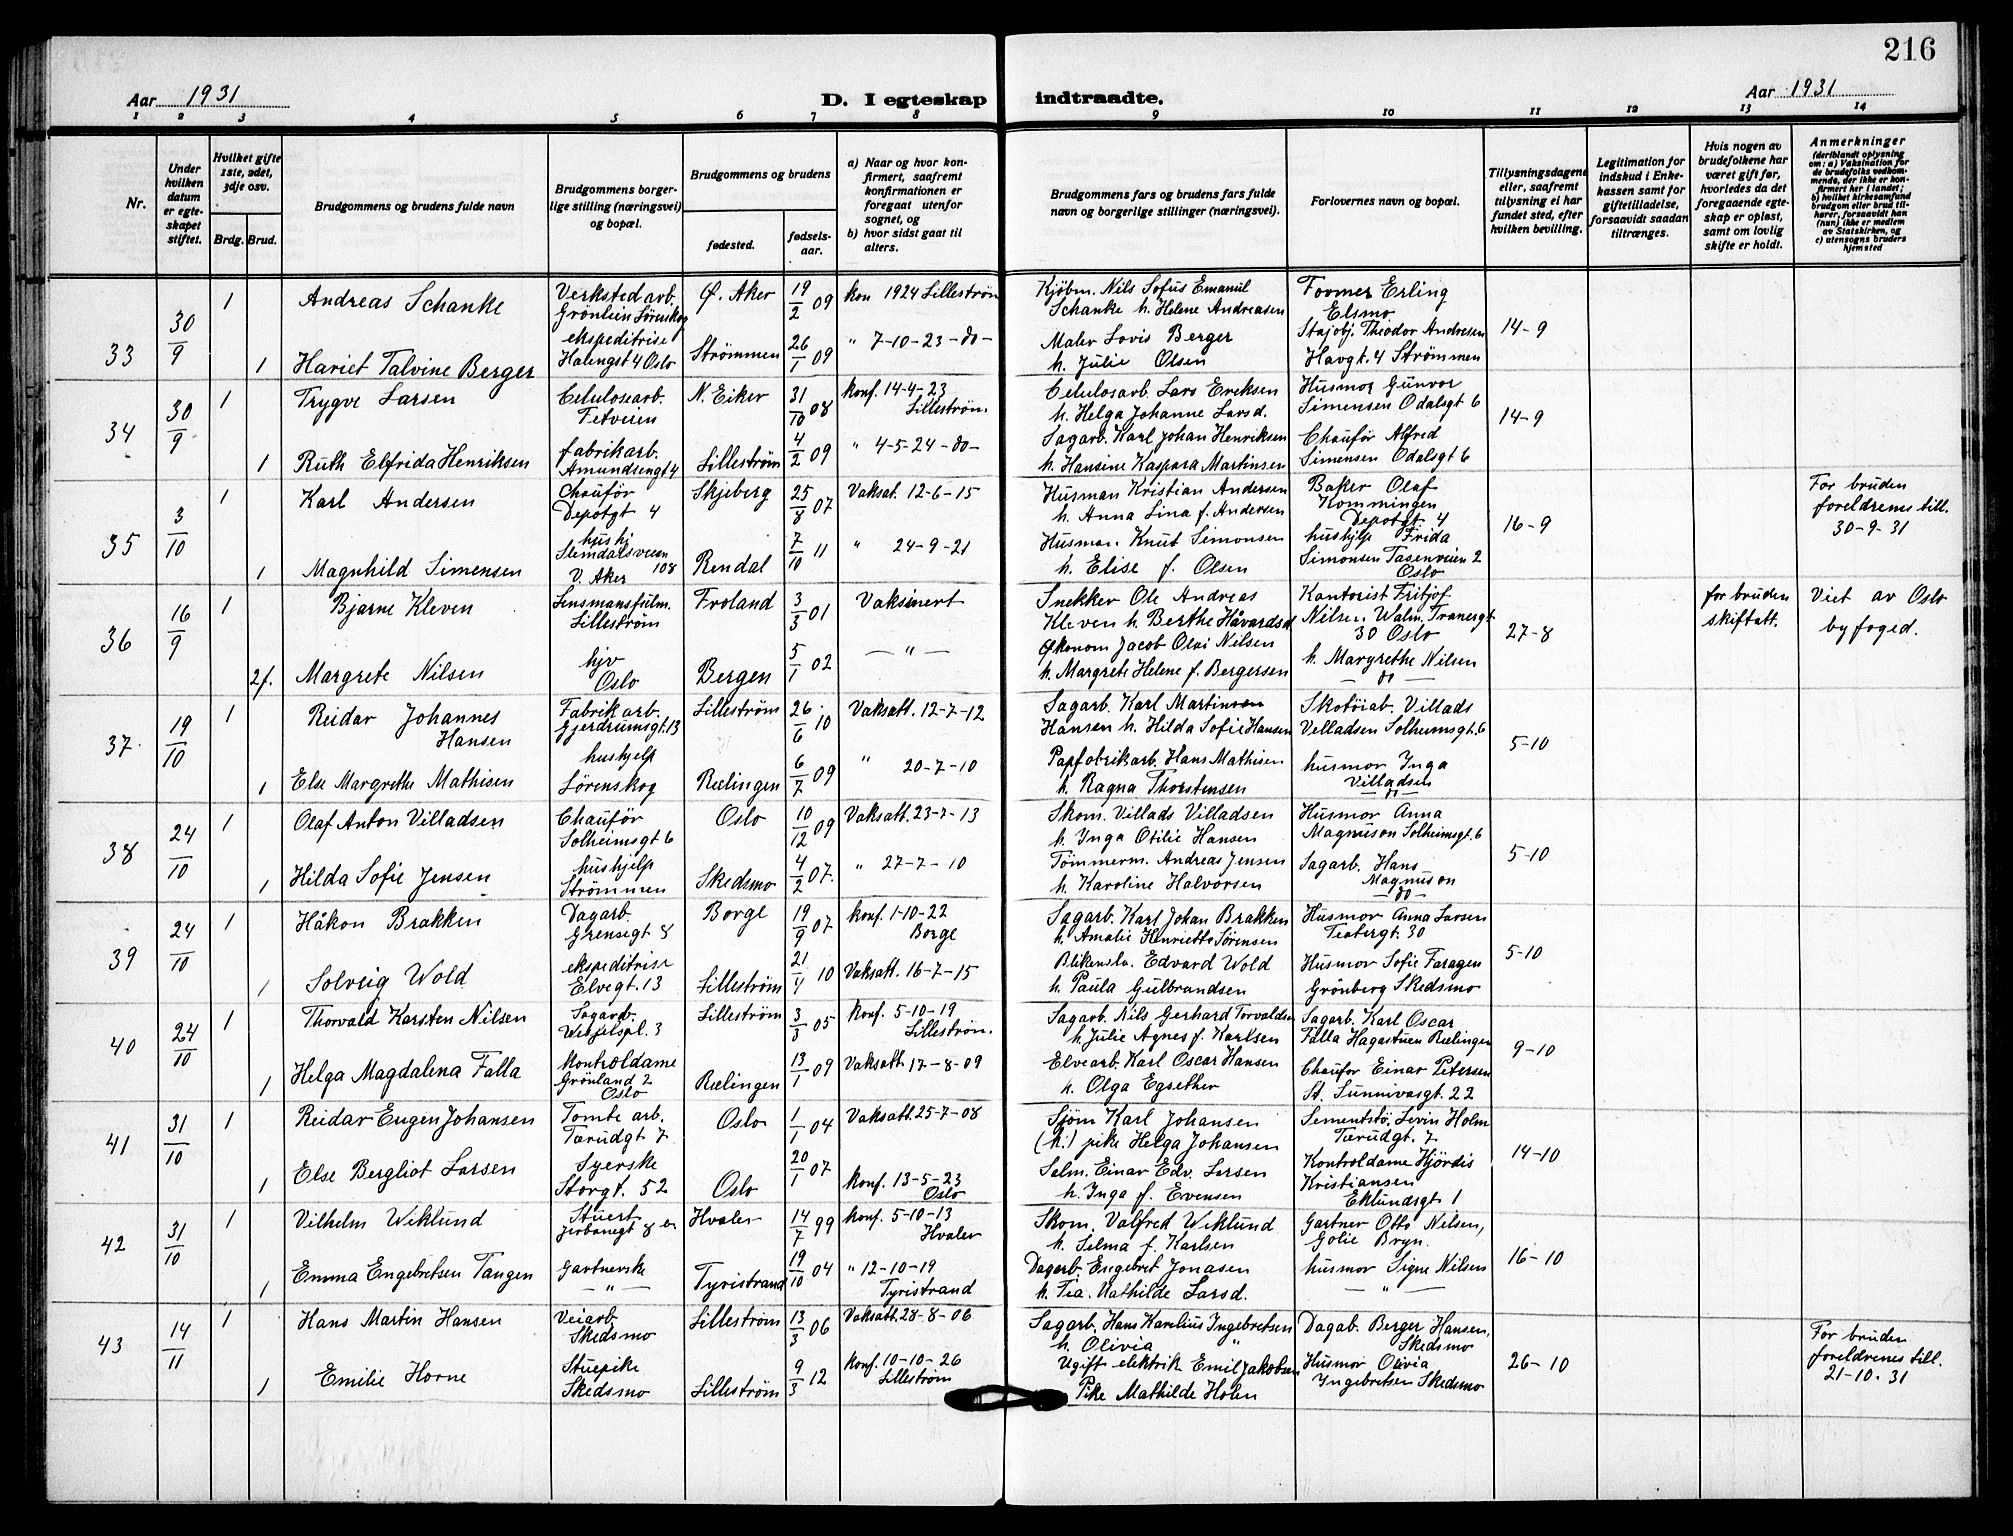 216
Aar 1931
D. I egteskap indtraadte.
Aar 1931
1 2 3 4 5 6 7 8 9 10 11 12 13 14
Nr.
Under hvilken datum er egteskapet stiftet.
Hvilket gifte 1ste, 2det, 3dje osv.
Brdg. Brud.
Brudgommens og brudens fulde navn
Brudgommens borgerlige stilling (næringsvei) og bopæl.
Brudgommens og brudens
fødested.
fødselsaar.
a) Naar og hvor konfirmert, saafremt konfirmationen er foregaat utenfor sognet, og
b) hvor sidst gaat til alters.
Brudgommens fars og brudens fars fulde navn og borgerlige stillinger (næringsvei).
Forlovernes navn og bopæl.
Tillysningsdagene eller, saafremt tillysning ei har fundet sted, efter hvilken bevilling.
Legitimation for indskud i Enkekassen samt for giftetilladelse, forsaavidt saadan tiltrænges.
Hvis nogen av brudefolkene har været gift før, hvorledes da det foregaaende egteskap er opløst, samt om lovlig skifte er holdt.
Anmerkninger
(deriblandt oplysning om: a) Vaksination for de brudefolks vedkommende, der ikke er konfirmert her i landet; b) hvilket kirkesamfund brudgom eller brud tilhører, forsaavidt han (hun) ikke er medlem av Statskirken, og c) utensogns bruders hjemsted
33 30/9 1 Andreas Schanke Verksted arb. Grönlien Sørenskog Ø. Aker 19/2 09 kon 1924 Lilleström Kjöbm. Nils Sofus Emanuel Schanke h. Helene Andreasen Formner Erling Elsmo 14-9
1 Hariet Talvine Berger ekspeditrise Halengst 4 Oslo Strömmen 26/1 09 " 7-10-23 -do- Maler Lovis Berger h. Julie Olsen Theodor Andresen Havgt. 4 Strömmen
34 30/9 1 Trygve Larsen Celulosearb. Tetveien N. Eiker 31/10 08 konf. 14-4-23 Lilleström. Celulosarb. Lars Ereksen h. Helga Johanne Larsd. Husmor Gunvor Simensen Odalsgt 6 14-9
1 Ruth Elfrida Henriksen fabrikarb. Amundsengt 4 Lilleström 4/2 09 " 4-5-24 -do- Sagarb. Karl Johan Henriksen h. Hansine Kaspara Martinsen Chauför Alfred Simensen Odalsgt 6
35 3/10 1 Karl Andersen Chauför Depotgt 4 Skjeberg 25/8 07 Vaksat. 12-6-15 Husman Kristian Andersen h. Anna Lina f. Andersen Baker Olaf Kommingen Depotgt. 4 16-9 For bruden foreldrenes till. 30-9-31
1 Magnhild Simensen hushj Slemdalsveien 108 V. Aker Rendal 7/10 11 " 24-9-21 Husman Knut Simonsen h. Elise f. Olsen hushjelp Frida Simonsen Tasenveien 2 Oslo
36 16/9 1 Bjarne Kleven Lensmansfulm. Lilleström Froland 3/3 01 Vaksinert Snekker Ole Andreas Kleven h. Berthe Håvardsd Kontorist Fritjof Nilsen, Walm. Tranesgt 30 Oslo 27-8 for bruden skiftatt. Viet av Oslo byfoged.
2f. Margrete Nilsen hjv Oslo Bergen 5/1 02 — " — Økonom Jacob Olai Nilsen h. Margrete Helene f. Bergersen h. Margrethe Nilsen — do —
37 19/10 1 Reidar Johannes Hansen Fabrikarb. Gjerdrumsgt. 13 Lilleström 26/6 10 Vaksatt. 12-7-12 Sagarb. Karl Martinsen Hansen h. Hilda Sofie Hansen Skotöiab. Villads Velladsen Solheimsgt. 6 5-10
1 Else Margrethe Mathisen hushjelp Lörenskog Rælingen 6/7 09 " 20-7-10 Papfabrikarb. Hans Mathisen h. Ragna Thorstensen husmor Inga Villadsen — do —
38 24/10 1 Olaf Anton Villadsen Chauför Solheimsgt 6 Oslo 10/12 09 Vaksatt. 23-7-13 Skom. Villads Villadsen h. Inga Otilie Hansen Husmor Anna Magnuson Solheimsgt. 6 5-10
1 Hilda Sofie Jensen hushjelp Strömmen Skedsmo 4/2 07. " 27-7-10 Tömmerm. Andreas Jensen h. Karoline Halvorsen Sagarb. Hans Magnuson — do —
39 24/10 1 Håkon Brakken Dagarb. Grensegt 8 Borge 19/9 07 konf. 1-10-22 Borge Sagarb. Karl Johan Brakken h. Amalie Henriette Sørensen Husmor Anna Larsen Teatergt. 30 5-10
1 Solveig Wold ekspeditrise Elvegt. 13 Lilleström 21/4 10 Vaksatt. 16-7-15 Blikensla. Edvard Wold h. Paula Gulbrandsen Husmor Sofie Faragen Grönberg Skedsmo
40 24/10 1 Thorvald Karsten Nilsen Sagarb. 3 Lilleström 3/3 05 konf. 5-10-19 Lilleström. Sagarb. Nils Gerhard Torvaldsen h. Julie Agnes f. Karlsen Sagarb. Karl Oscar Falla Hagastuen Rælingen 9-10
1 Helga Magdalena Falla Kontroldame Grönland 2 Oslo Rælingen 13/1 09 Vaksatt. 17-8-09 Elvearb. Karl Oscar Hansen h. Olga Egsether Chauför Einar Petersen St. Sunnivasgt. 22
41 31/10 1 Reidar Eugen Johansen Tomte arb. Tærudgt 7 Oslo 1/1 04 Vaksatt. 25-7-08 Sjöm Karl Johansen (h.) pike Helga Johansen Sementstö. Levin Holm Tærudgt. 7 14-10
1 Else Bergliot Larsen Syerske Storgt. 52 Oslo 20/1 07 konf. 13-5-23 Oslo Salm. Einar Edv. Larsen h. Inga f. Evensen Kontroldame Hjördis Kristiansen Eklundsgt 1
42 31/10 1 Vilhelm Wiklund Stuert Jerbanegt 8 Hvaler 14/7 99 konf. 5-10-13 Hvaler Skom. Valfred Wiklund h. Selma f. Karlsen Gartner Otto Nilsen, Golie Bryn. 16-10
1 Emma Engebretsen Tangen Gartnerske — " — Tyristrand 19/10 04 " 12-10-19 Tyristrand Dagarb. Engebret Jonasen h. Tea Mathilde Larsd. husmor Signe Nilsen — " —
43 14/11 1 Hans Martin Hansen Veiarb. Skedsmo Lilleström 13/3 06 Vaksatt. 28-8-06 Sagarb. Hans Karelius Ingebretsen h. Olivia " Dagab. Berger Hansen, Skedsmo 26-10 For bruden foreldrenes till. 21-10-31
1 Emilie Horne Stuepike Skedsmo Lilleström 9/3 12 konf. 10-10-26 Lilleström Ugift elektrik Emil Jakobsen Pike Mathilde Holen Husmor Olivia Ingebretsen Skedsmo